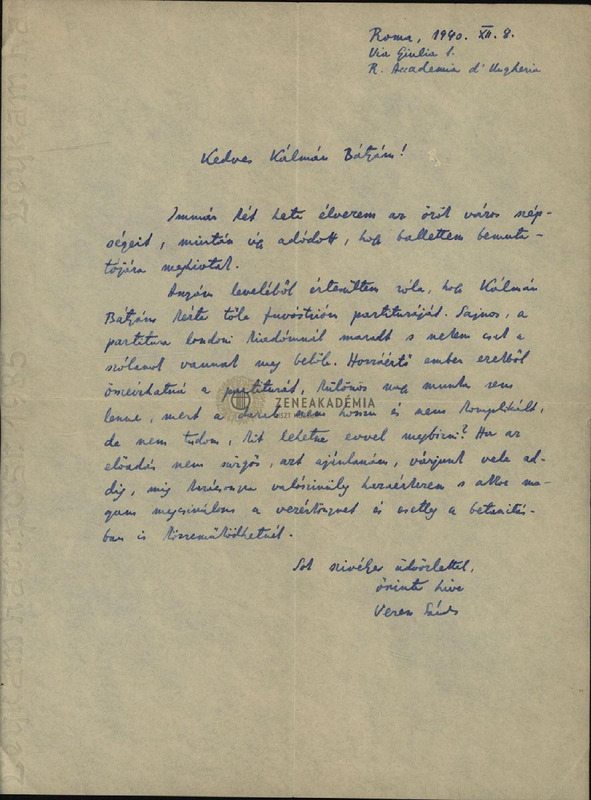 Roma, 1940. XII. 8.
Via Giulia 1.
R. Accademia d'Ungheria
Kedves Kálmán Bátyám!
Immár két hete élvezem az örök város szép-
ségeit, miután úgy adódott, hogy ballettem bemuta-
tójára meghívtak.
Anyám leveléből értesültem róla, hogy Kálmán
Bátyám kérte tőle fuvóstrióm partituráját. Sajnos, a
partitura londoni kiadómnál maradt s nekem csak a
szólamok vannak meg belőle. Hozzáértő ember ezekből
összeírhatná a partiturát, különös nagy munka sem
lenne, mert a darab nem hosszu és nem komplikált,
da nem tudom, kit lehetne evvel megbizni? Ha az
előadás nem sürgős, azt ajánlanám, várjunk vele ad-
dig, míg karácsonyra valószinüleg hazaérkezem s akkor ma-
gam megcsinálom a vezérkönyvet és esetleg a betanitás-
ban is közremüködhetnék.
Sok szivélyes üdvözlettel,
őszinte hive
Veress Sándor
ZENEAKADÉMIA
LISZT